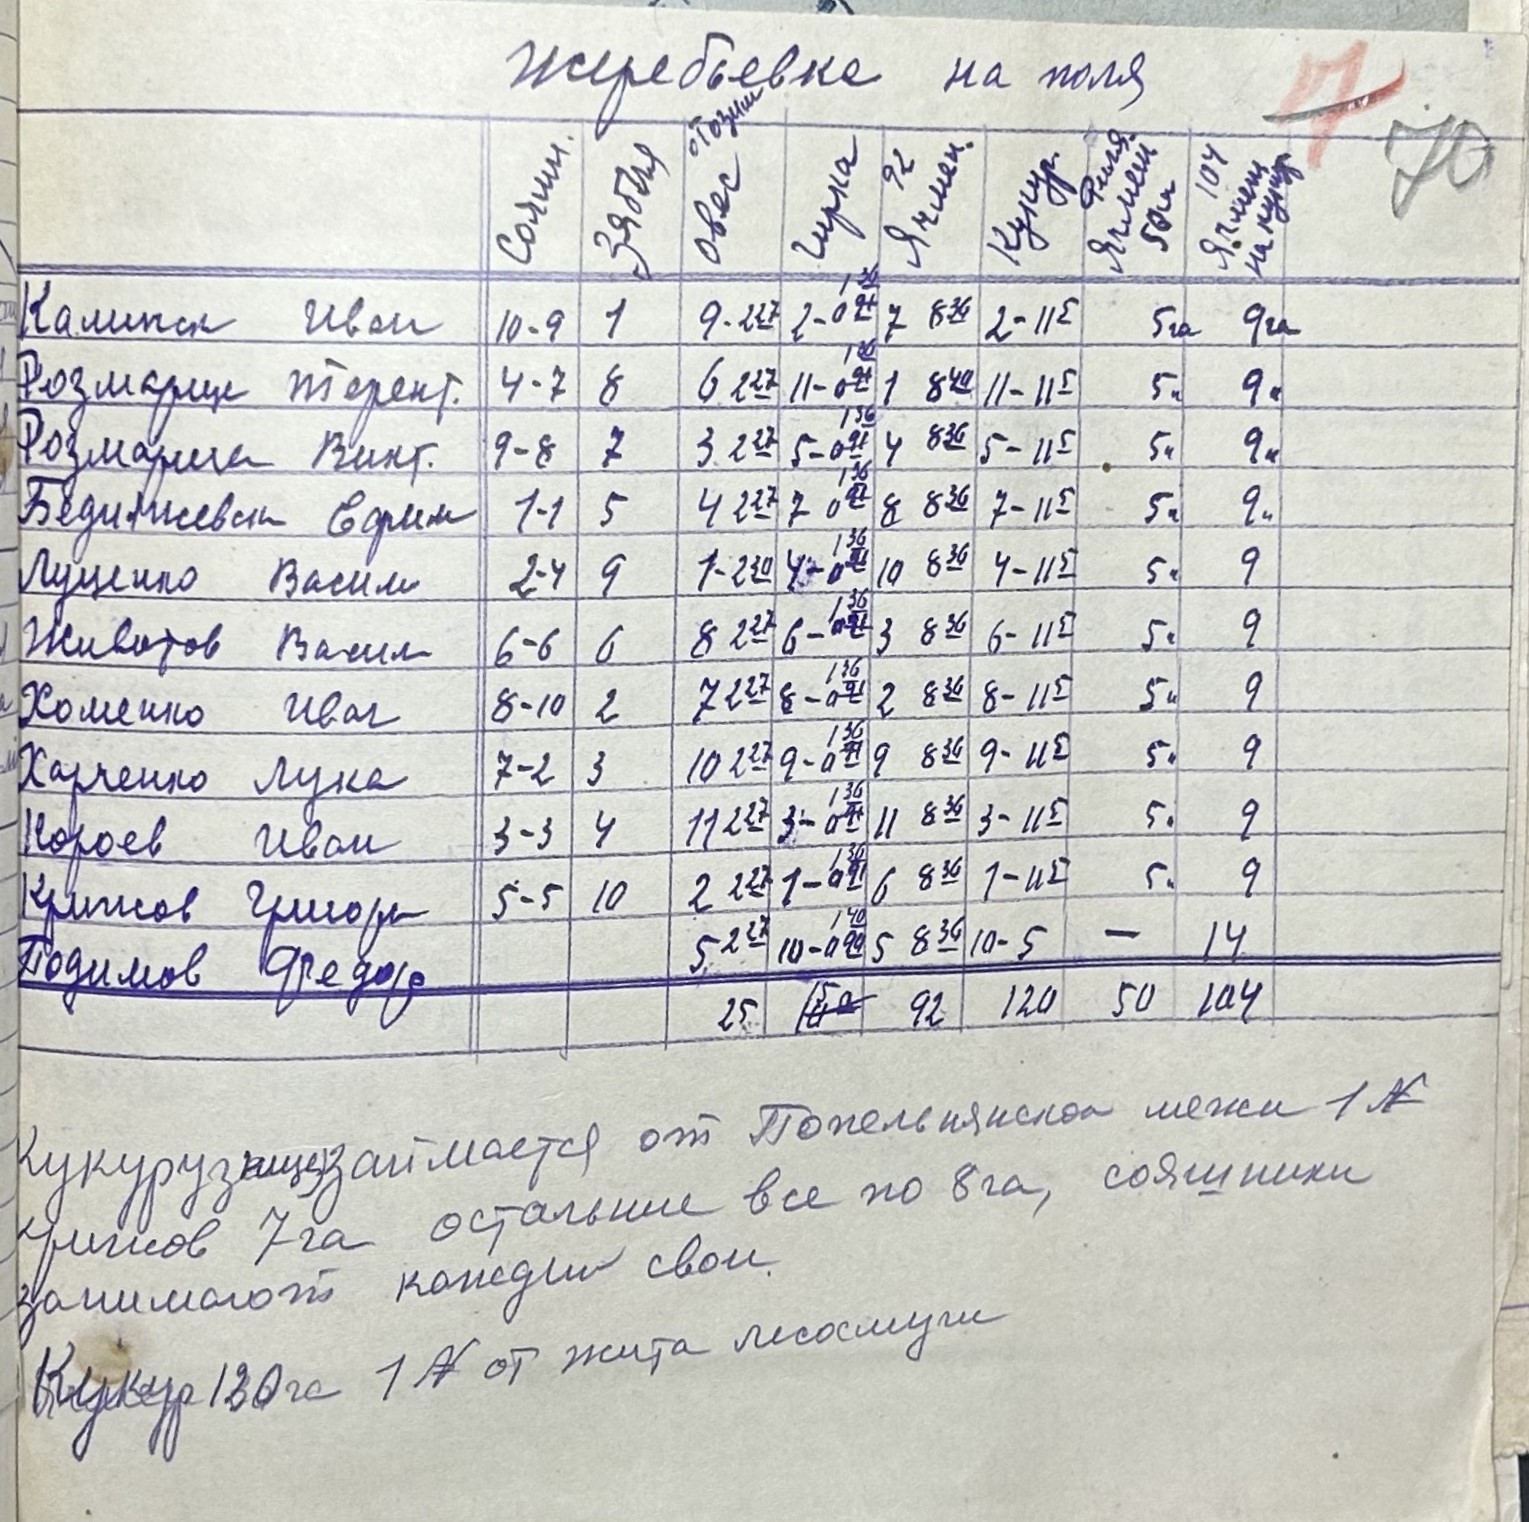 Жеребьевка на поля
7 70
Сояшн. Зябля Овес от озим Гирка 92 Ячмен. Кукур. Ячмен 50 га 104 Ячмень на кукур
Калинск Иван 10-9 1 9-2 27 2-0 91 1 36 7 8 36 2-11 5 5 га 9 га
Розмарице Терент. 4-7 8 6 2 27 11-0 91 1 36 1 8 40 11-11 5 5 " 9 "
Розмарице Викт. 9-8 7 3 2 27 5-0 91 1 36 4 8 36 5-11 5 5 " 9 "
Ефим 1-1 5 4 2 27 7 0 91 1 36 8 8 36 7-11 5 5 " 9 "
Луценко Васили 2-4 9 1-2 30 4-0 91 1 36 10 8 36 4-11 5 5 " 9
Животов Васили 6-6 6 8 2 27 6-0 91 1 36 3 8 36 6-11 5 5 " 9
Хоменко Иван 8-10 2 7 2 27 8-0 91 1 36 2 8 36 8-11 5 5 " 9
Харченко Лука 7-2 3 10 2 27 9-0 91 1 36 9 8 36 9-11 5 5 " 9
Короев Иван 3-3 4 11 2 27 3-0 91 1 36 11 8 36 3-11 5 5 " 9
Крижов Григори 5-5 10 2 2 27 1-0 91 1 36 6 8 36 1-11 5 5 " 9
Подимов Федор 5 2 27 10-0 90 1 40 5 8 36 10-5 — 14
25 92 120 50 104
Кукуруз займается от Попельнянской межи 1 №
Крижов 7 га остальние все по 8 га, сояшники
занимают каждий свои.
Кукур 130 га 1 № от жита лесосмуги